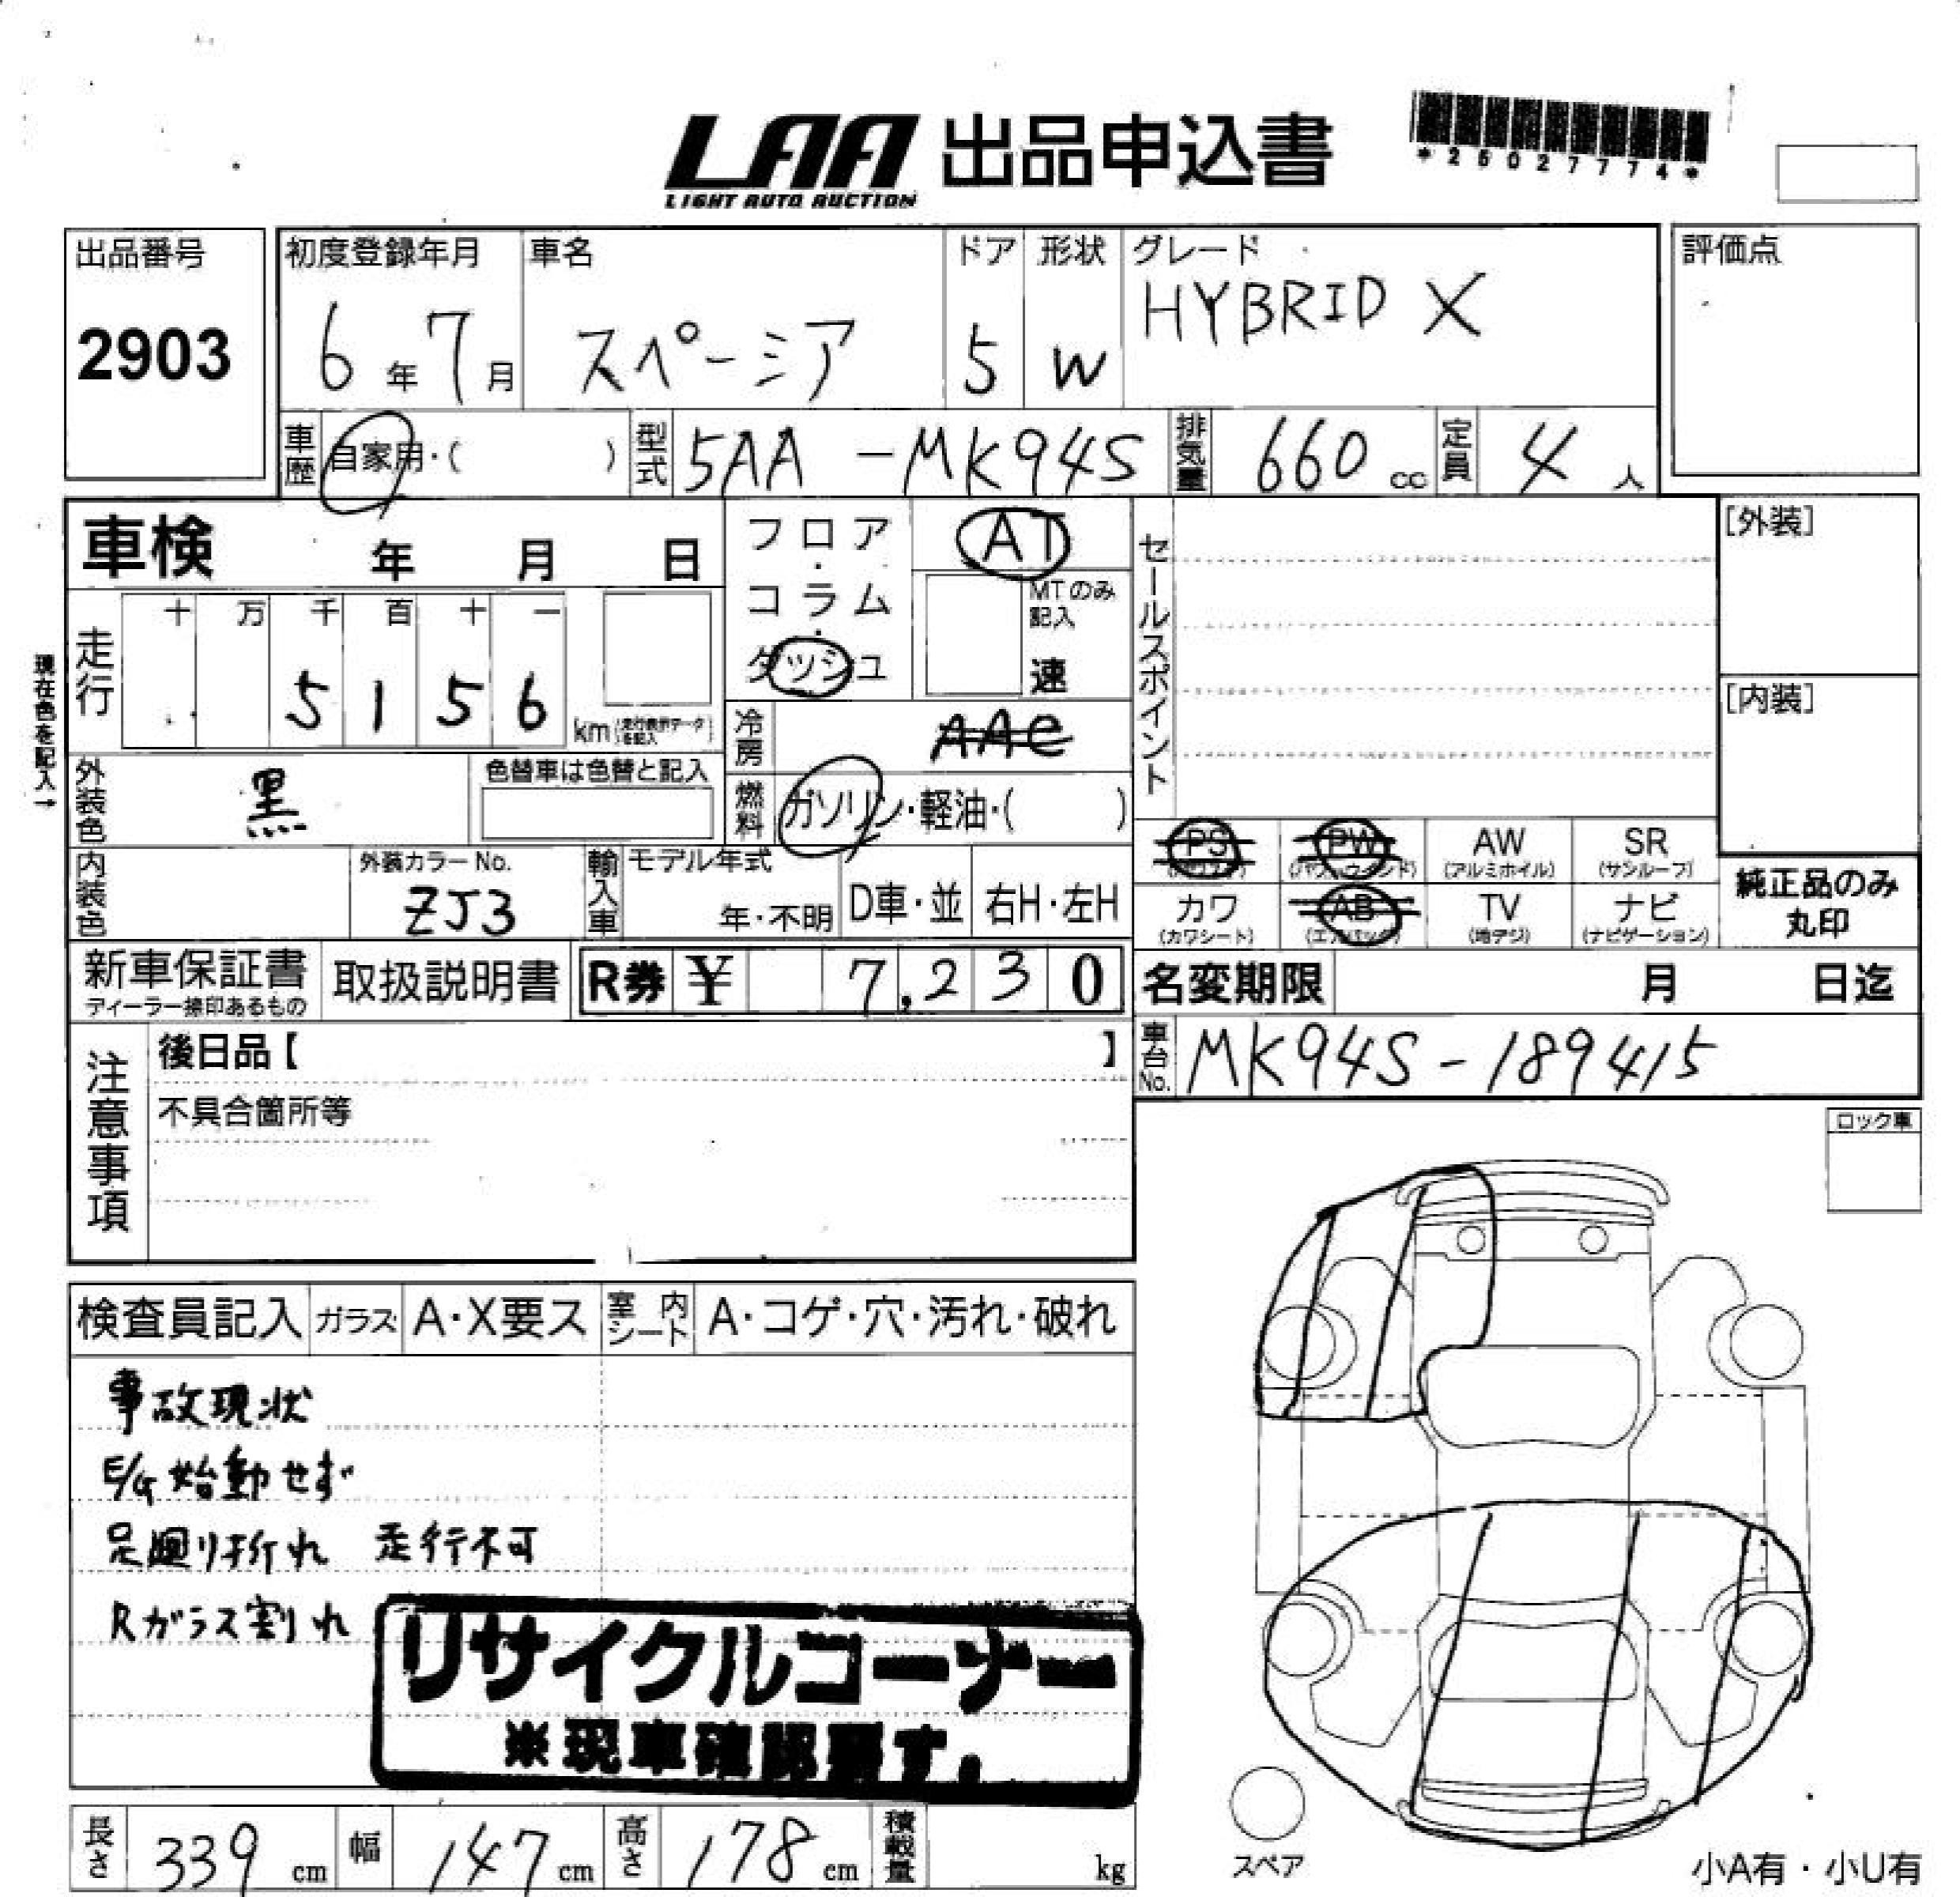 LAA 出品申込書
LIGHT AUTO AUCTION
*25027774*
出品番号
2903
初度登録年月
6年7月
車名
スペーシア
ドア
5
形状
W
グレード
HYBRID X
評価点
車歴
自家用・( )
型式
5AA-MK94S
排気量
660 cc
定員
4 人
車検 年 月 日
現在色を記入→
走行
十 万 千 百 十 一
5 1 5 6
km (走行表示データを記入)
フロア・コラム・ダッシュ
AT
MTのみ記入
速
冷房
AAC
燃料
ガソリン・軽油・( )
外装色
黒
色替車は色替と記入
内装色
外装カラーNo.
ZJ3
輸入車
モデル年式
年・不明
D車・並
右H・左H
セールスポイント
[外装]
[内装]
PS
PW
AW
(アルミホイル)
SR
(サンルーフ)
カワ
(カワシート)
AB
(エアバッグ)
TV
(地デジ)
ナビ
(ナビゲーション)
純正品のみ
丸印
新車保証書
ディーラー捺印あるもの
取扱説明書
R券 ¥ 7,230
名変期限 月 日迄
車台No.
MK94S-189415
注意事項
後日品【 】
不具合箇所等
ロック車
検査員記入
ガラス
A・X要ス
室内シート
A・コゲ・穴・汚れ・破れ
事故現状
E/G 始動せず
足廻り折れ 走行不可
Rガラス割れ
リサイクルコーナー
※現車確認要す。
長さ
339 cm
幅
147 cm
高さ
178 cm
積載量
kg
スペア
小A有・小U有